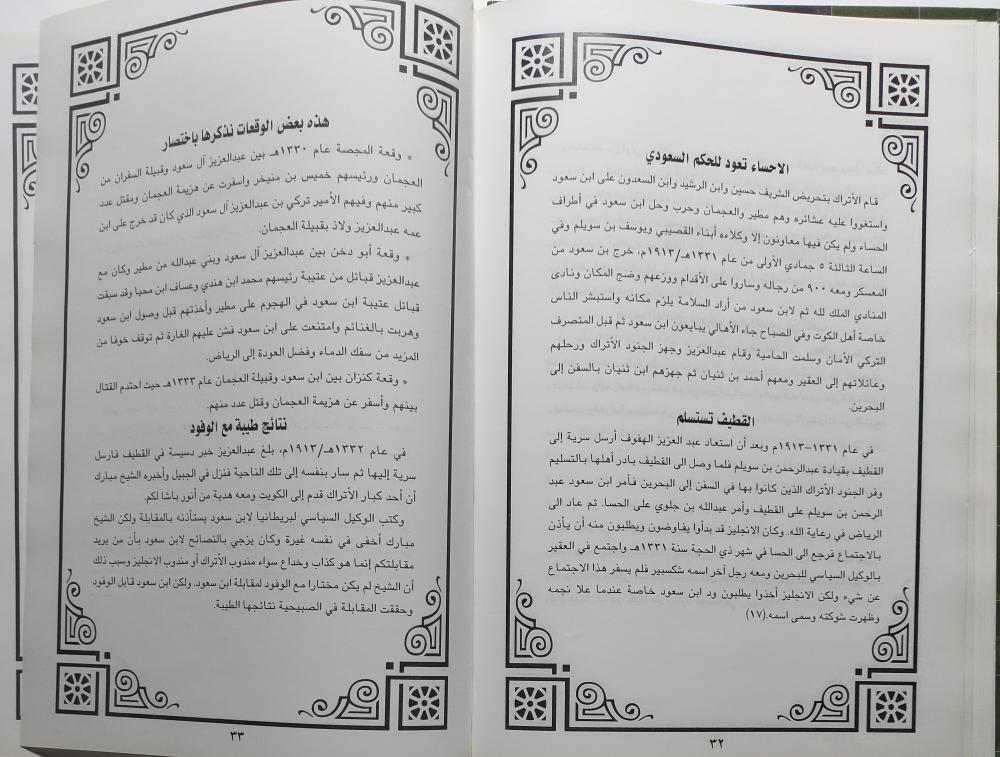 الاحساء تعود للحكم السعودي
قام الأتراك بتحريض الشريف حسين وابن الرشيد وابن السعدون على ابن سعود
واستغووا عليه عشائره وهم مطير والعجمان وحرب وحل ابن سعود في أطراف
الحساء ولم يكن فيها معاونون إلا وكلاءه أبناء القصيبي ويوسف بن سويلم وفي
الساعة الثالثة ٥ جمادي الأولى من عام ١٣٣١هـ/١٩١٣م، خرج بن سعود من
المعسكر ومعه ٩٠٠ من رجاله وساروا على الأقدام ووزعهم وضج المكان ونادى
المنادي الملك لله ثم لابن سعود من أراد السلامة يلزم مكانه واستبشر الناس
خاصة أهل الكوت وفي الصباح جاء الأهالي يبايعون ابن سعود ثم قبل المتصرف
التركي الأمان وسلمت الحامية وقام عبدالعزيز وجهز الجنود الأتراك ورحلهم
وعائلاتهم إلى العقير ومعهم أحمد بن ثنيان ثم جهزهم ابن ثنيان بالسفن إلى
البحرين.
القطيف تستسلم
في عام ١٣٣١–١٩١٣م وبعد أن استعاد عبد العزيز الهفوف أرسل سرية إلى
القطيف بقيادة عبدالرحمن بن سويلم فلما وصل الى القطيف بادر أهلها بالتسليم
وفر الجنود الأتراك الذين كانوا بها في السفن إلى البحرين فأمر ابن سعود عبد
الرحمن بن سويلم على القطيف وأمر عبدالله بن جلوي على الحسا. ثم عاد الى
الرياض في رعاية الله. وكان الانجليز قد بدأوا يفاوضون ويطلبون منه أن يأذن
بالاجتماع فرجع الى الحسا في شهر ذي الحجة سنة ١٣٣١هـ واجتمع في العقير
بالوكيل السياسي للبحرين ومعه رجل آخر اسمه شكسبير فلم يسفر هذا الاجتماع
عن شيء ولكن الانجليز أخذوا يطلبون ود ابن سعود خاصة عندما علا نجمه
وظهرت شوكته وسمى اسمه.(١٧)
٣٢
هذه بعض الوقعات نذكرها باختصار
* وقعة المجصة عام ١٣٣٠هـ بين عبدالعزيز آل سعود وقبيلة السفران من
العجمان ورئيسهم خميس بن منيخر واسفرت عن هزيمة العجمان ومقتل عدد
كبير منهم وفيهم الأمير تركي بن عبدالعزيز آل سعود الذي كان قد خرج على ابن
عمه عبدالعزيز ولاذ بقبيلة العجمان.
* وقعة أبو دخن بين عبدالعزيز آل سعود وبني عبدالله من مطير وكان مع
عبدالعزيز قبائل من عتيبة رئيسهم محمد ابن هندي وعساف ابن محيا وقد سبقت
قبائل عتيبة ابن سعود في الهجوم على مطير وأخذتهم قبل وصول ابن سعود
وهربت بالغنائم وامتنعت على ابن سعود فشن عليهم الغارة ثم توقف خوفا من
المزيد من سفك الدماء وفضل العودة إلى الرياض.
* وقعة كنزان بين ابن سعود وقبيلة العجمان عام ١٣٣٣هـ حيث احتدم القتال
بينهم وأسفر عن هزيمة العجمان وقتل عدد منهم.
نتائج طيبة مع الوفود
في عام ١٣٣٢هـ/١٩١٣م، بلغ عبدالعزيز خبر دسيسة في القطيف فارسل
سرية إليها ثم سار بنفسه إلى تلك الناحية فنزل في الجبيل وأخبره الشيخ مبارك
أن أحد كبار الأتراك قدم إلى الكويت ومعه هدية من أنور باشا لكم.
وكتب الوكيل السياسي لبريطانيا لابن سعود يستأذنه بالمقابلة ولكن الشيخ
مبارك أخفى في نفسه غيرة وكان يزجي بالنصائح لابن سعود بأن من يريد
مقابلتكم إنما هو كذاب وخداع سواء مندوب الأتراك أو مندوب الانجليز وسبب ذلك
أن الشيخ لم يكن مختارا مع الوفود لمقابلة ابن سعود. ولكن ابن سعود قابل الوفود
وحققت المقابلة في الصبيحية نتائجها الطيبة.
٣٣